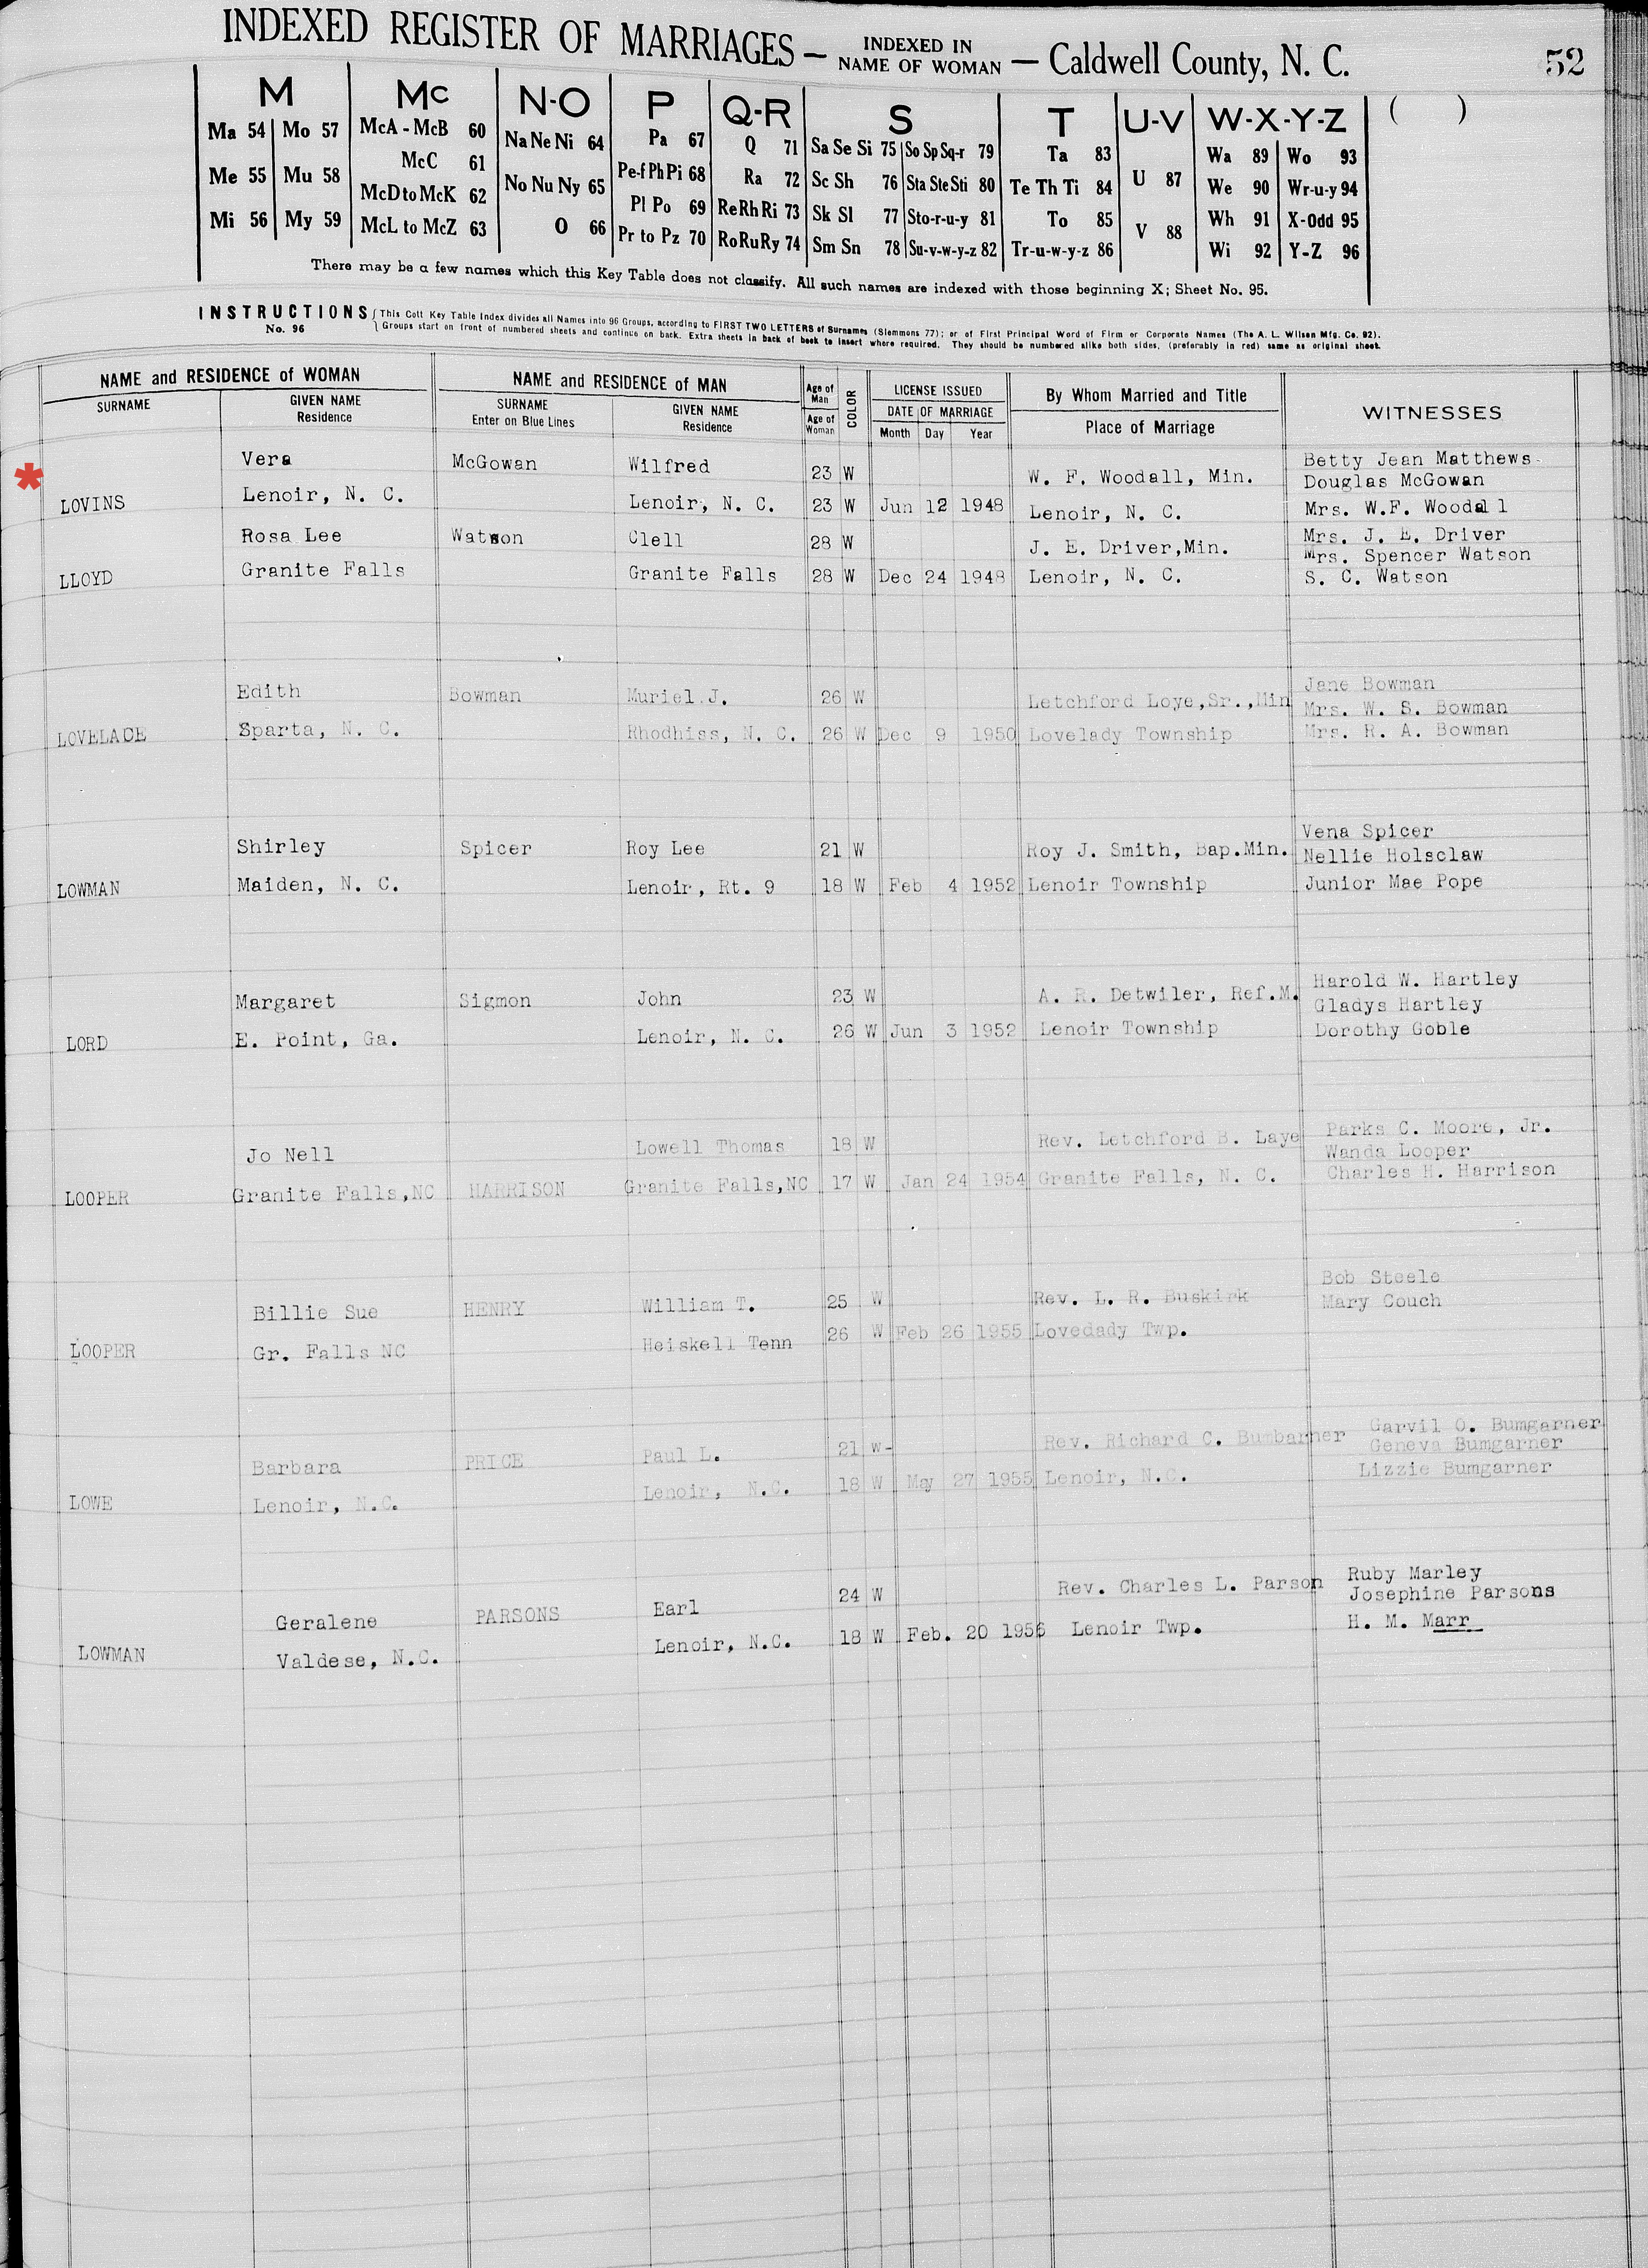 INDEXED REGISTER OF MARRIAGES — INDEXED IN NAME OF WOMAN — Caldwell County, N. C.
52
M Mc N-O P Q-R S T U-V W-X-Y-Z ( )
Ma 54 Mo 57 McA - McB 60 Na Ne Ni 64 Pa 67 Q 71 Sa Se Si 75 So Sp Sq-r 79 Ta 83 U 87 Wa 89 Wo 93
Me 55 Mu 58 McC 61 No Nu Ny 65 Pe-f Ph Pi 68 Ra 72 Sc Sh 76 Sta Ste Sti 80 Te Th Ti 84 V 88 We 90 Wr-u-y 94
Mi 56 My 59 McD to McK 62 O 66 Pl Po 69 Re Rh Ri 73 Sk Sl 77 Sto-r-u-y 81 To 85 Wh 91 X-Odd 95
McL to McZ 63 Pr to Pz 70 Ro Ru Ry 74 Sm Sn 78 Su-v-w-y-z 82 Tr-u-w-y-z 86 Wi 92 Y-Z 96
There may be a few names which this Key Table does not classify. All such names are indexed with those beginning X; Sheet No. 95.
INSTRUCTIONS No. 96
This Cott Key Table Index divides all Names into 96 Groups, according to FIRST TWO LETTERS of Surnames (Slemmons 77); or of First Principal Word of Firm or Corporate Names (The A. L. Wilson Mfg. Co. 92).
Groups start on front of numbered sheets and continue on back. Extra sheets in back of book to insert where required. They should be numbered alike both sides, (preferably in red) same as original sheet.
NAME and RESIDENCE of WOMAN NAME and RESIDENCE of MAN Age of Man COLOR LICENSE ISSUED By Whom Married and Title WITNESSES
SURNAME GIVEN NAME Residence SURNAME Enter on Blue Lines GIVEN NAME Residence Age of Woman DATE OF MARRIAGE Month Day Year Place of Marriage
Vera McGowan Wilfred 23 W W. F. Woodall, Min. Betty Jean Matthews
Douglas McGowan
* LOVINS Lenoir, N. C. Lenoir, N. C. 23 W Jun 12 1948 Lenoir, N. C. Mrs. W.F. Woodall
Rosa Lee Watson Clell 28 W J. E. Driver,Min. Mrs. J. E. Driver
Mrs. Spencer Watson
LLOYD Granite Falls Granite Falls 28 W Dec 24 1948 Lenoir, N. C. S. C. Watson
Edith Bowman Muriel J. 26 W Letchford Loye,Sr.,Min Jane Bowman
Mrs. W. S. Bowman
LOVELACE Sparta, N. C. Rhodhiss, N. C. 26 W Dec 9 1950 Lovelady Township Mrs. R. A. Bowman
Shirley Spicer Roy Lee 21 W Roy J. Smith, Bap.Min. Vena Spicer
Nellie Holsclaw
LOWMAN Maiden, N. C. Lenoir, Rt. 9 18 W Feb 4 1952 Lenoir Township Junior Mae Pope
Margaret Sigmon John 23 W A. R. Detwiler, Ref.M. Harold W. Hartley
Gladys Hartley
LORD E. Point, Ga. Lenoir, N. C. 26 W Jun 3 1952 Lenoir Township Dorothy Goble
Jo Nell Lowell Thomas 18 W Rev. Letchford B. Laye Parks C. Moore, Jr.
Wanda Looper
LOOPER Granite Falls,NC HARRISON Granite Falls,NC 17 W Jan 24 1954 Granite Falls, N. C. Charles H. Harrison
Billie Sue HENRY William T. 25 W Rev. L. R. Buskirk Bob Steele
Mary Couch
LOOPER Gr. Falls NC Heiskell Tenn 26 W Feb 26 1955 Lovedady Twp.
Barbara PRICE Paul L. 21 W- Rev. Richard C. Bumbarner Garvil O. Bumgarner
Geneva Bumgarner
LOWE Lenoir, N.C. Lenoir, N.C. 18 W May 27 1955 Lenoir, N.C. Lizzie Bumgarner
Geralene PARSONS Earl 24 W Rev. Charles L. Parson Ruby Marley
Josephine Parsons
LOWMAN Valdese, N.C. Lenoir, N.C. 18 W Feb. 20 1956 Lenoir Twp. H. M. Marr